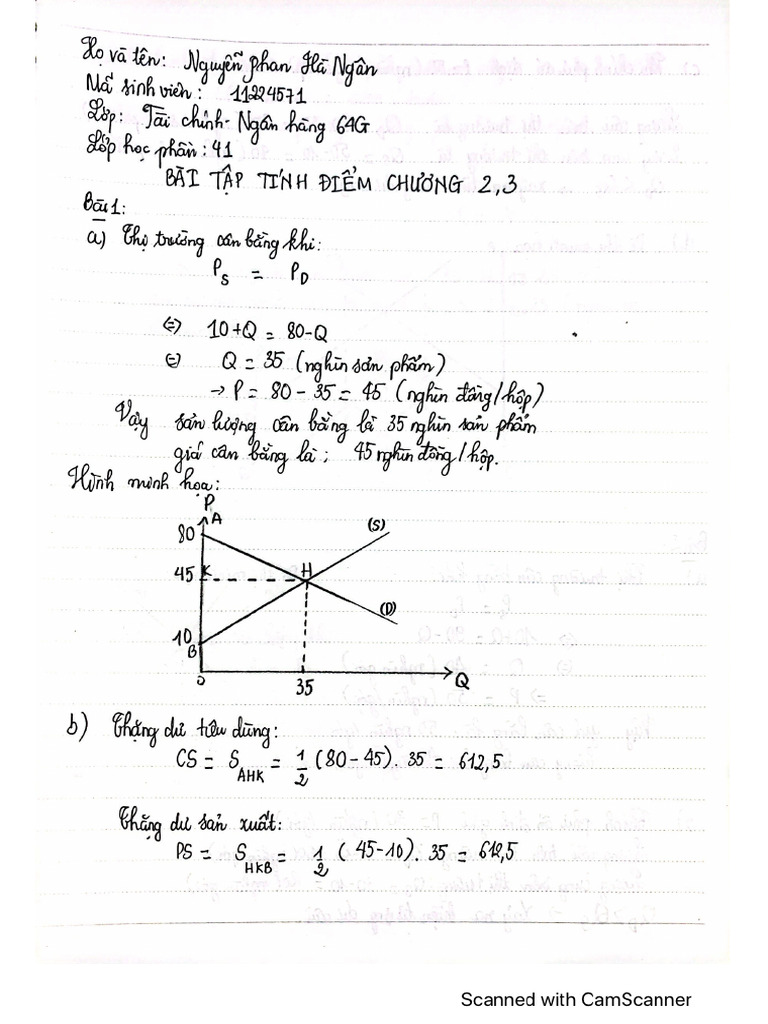 Họ và tên: Nguyễn Phan Hà Ngân
Mã sinh viên: 11224571
Lớp: Tài chính - Ngân hàng 64G
Lớp học phần: 41
BÀI TẬP TÍNH ĐIỂM CHƯƠNG 2,3
Bài 1:
a) Thị trường cân bằng khi:
P_S = P_D
⇔ 10+Q = 80-Q
⇔ Q = 35 (nghìn sản phẩm)
→ P = 80 - 35 = 45 (nghìn đồng/hộp)
Vậy sản lượng cân bằng là 35 nghìn sản phẩm
giá cân bằng là: 45 nghìn đồng/hộp.
Hình minh họa:
P
A
(S)
80
45 K H
(D)
10
B
0 35 Q
b) Thặng dư tiêu dùng:
CS = S_AHK = 1/2 (80-45). 35 = 612,5
Thặng dư sản xuất:
PS = S_HKB = 1/2 (45-10). 35 = 612,5
Scanned with CamScanner